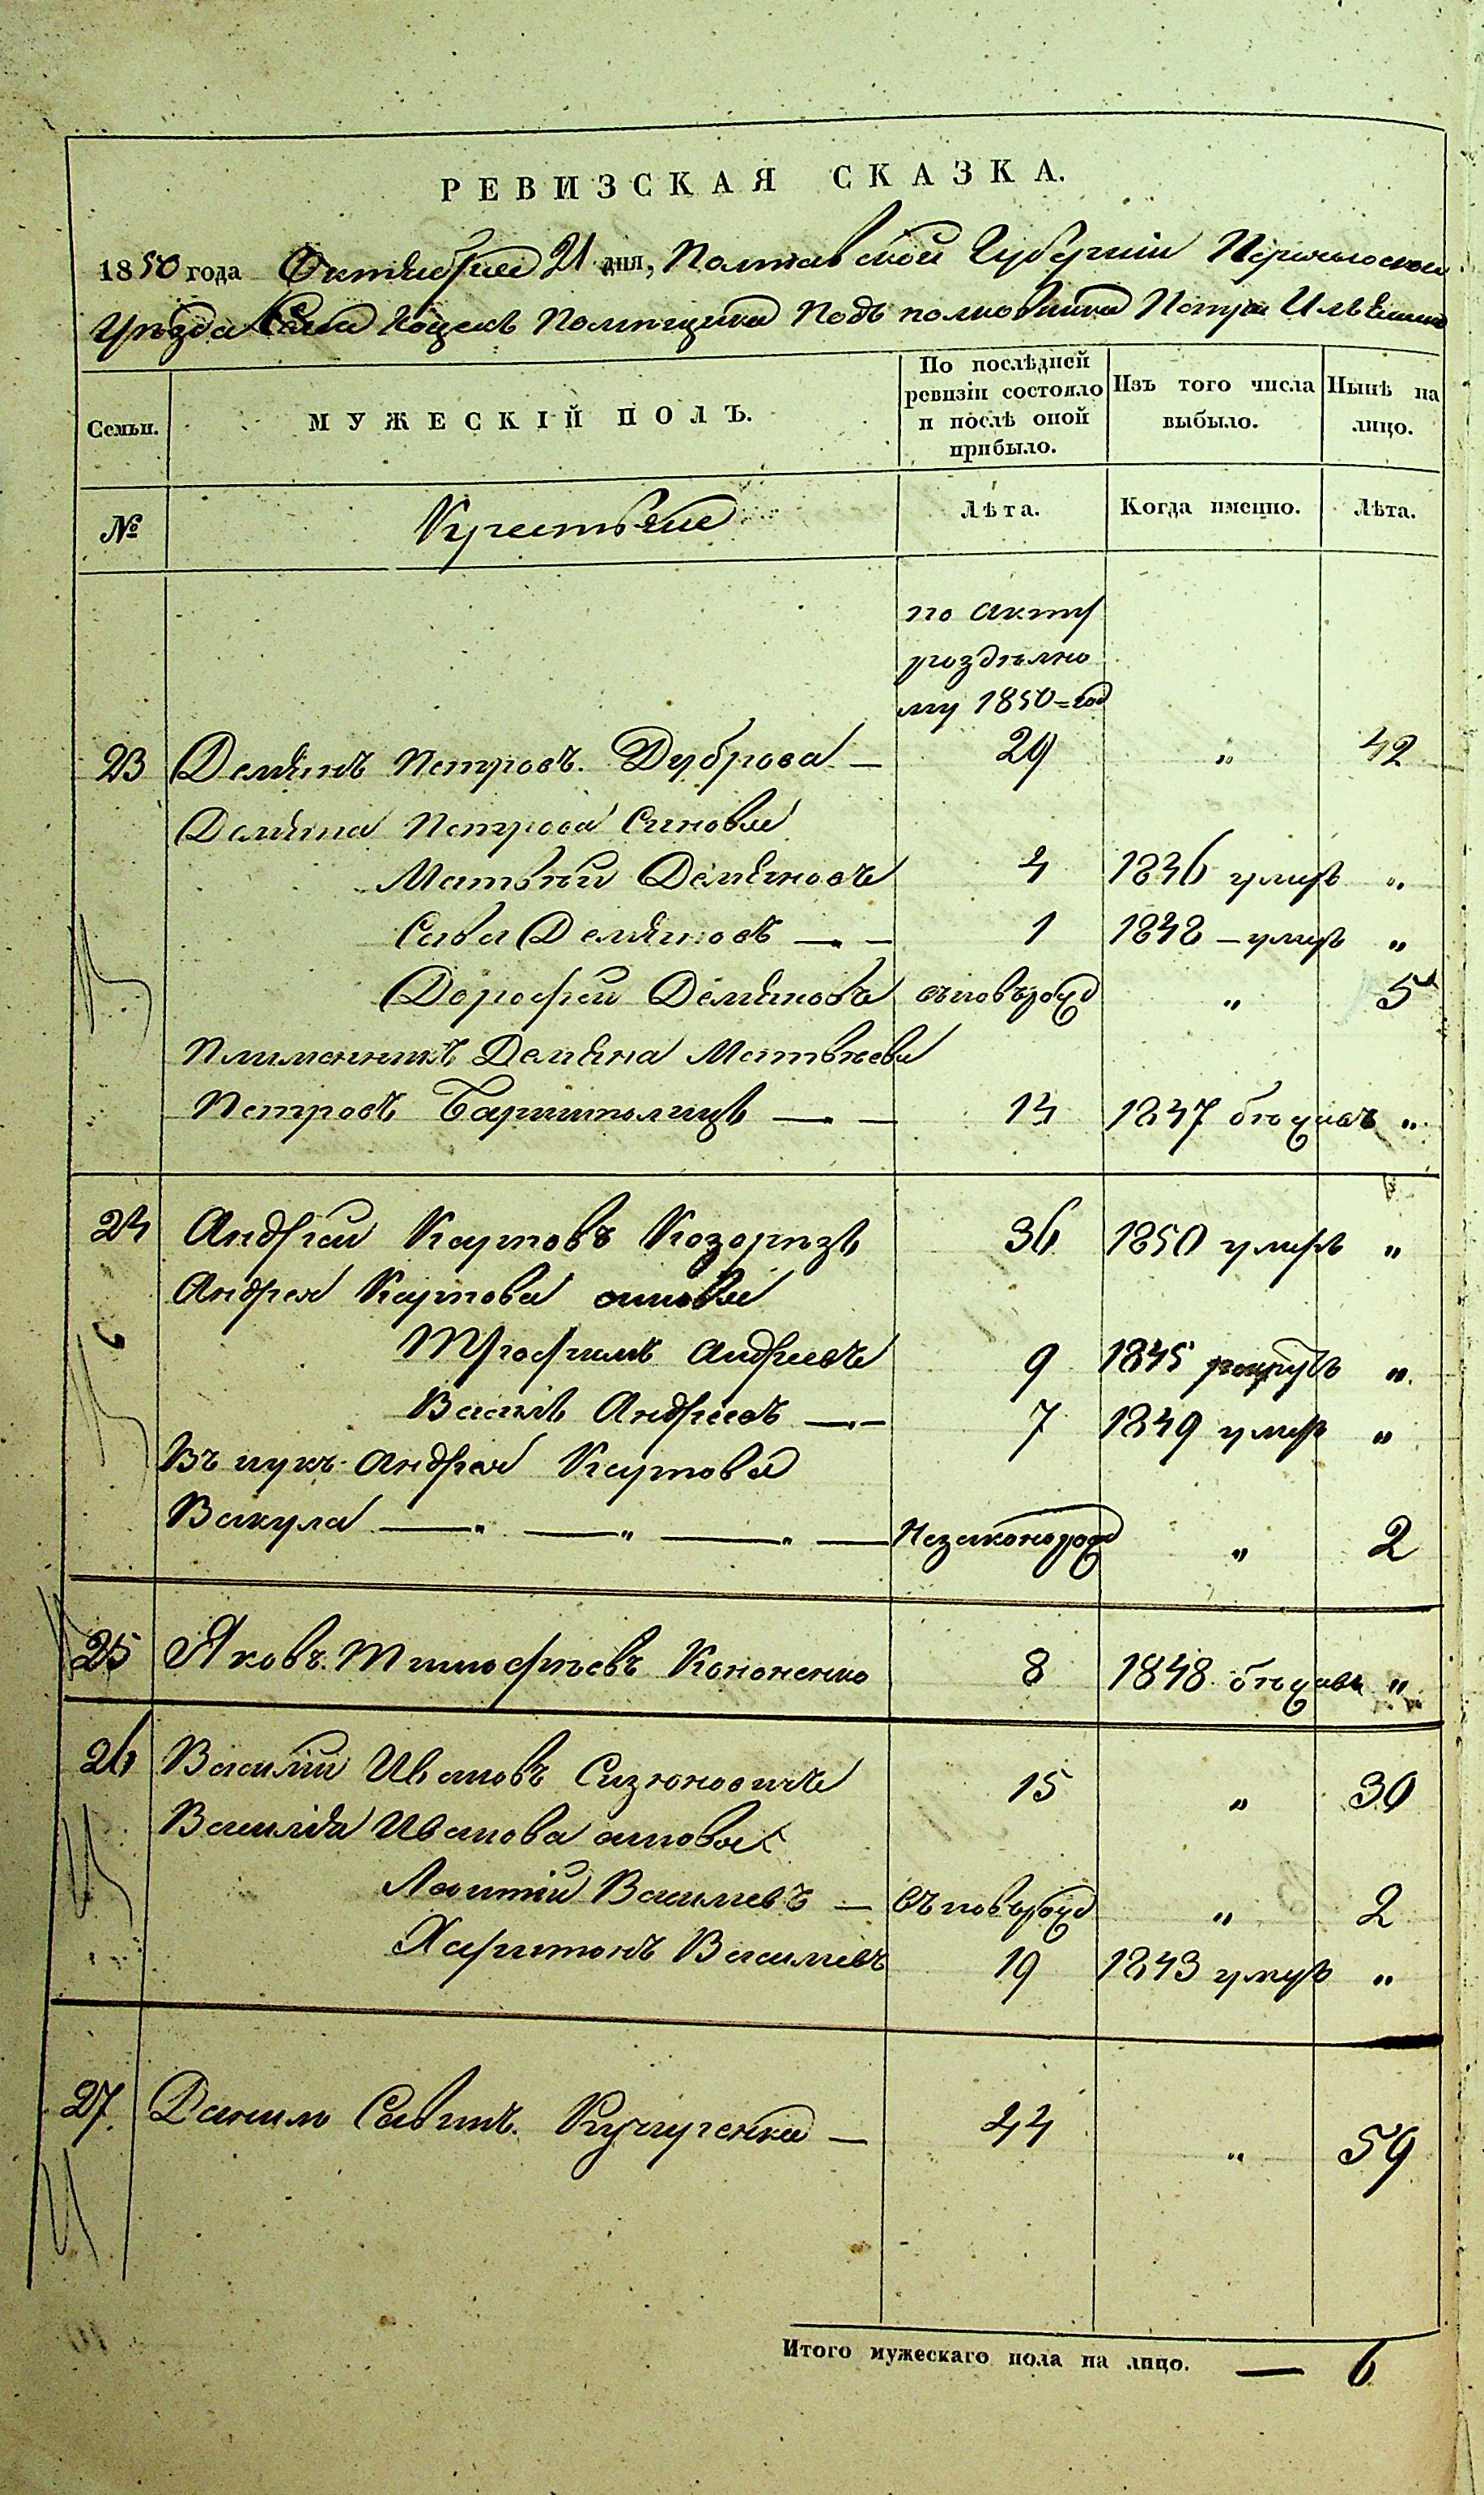 РЕВИЗСКАЯ СКАЗКА.
1850 года Октября 21 дня, Полтавской Губернии
Уезда Села Помещика Подъ полковника Петра
Семьи. МУЖЕСКІЙ ПОЛЪ. По послѣдней ревизіи состояло и послѣ оной прибыло. Изъ того числа выбыло. Нынѣ на лицо.
№ Крестьяне Лѣта. Когда именно. Лѣта.
по акту
раздѣлно
му 1850=год
23 Демянъ Петровъ Дуброва — 29 „ 42
Демяна Петрова Синовя
Матвѣй Демяновъ 4 1836 умеръ „
Сава Демяновъ — 1 1842 – умеръ „
Дорофей Демяновъ въновърожд „ 5
Племенникъ Демяна Матвѣева
Петровъ — 14 1847 бѣжавъ „
24 Андрей Карповъ Козорѣзъ 36 1850 умеръ „
Андрея Карпова синовя
Трофимъ Андреевъ 9 1845 рекрутъ „
Василь Андреевъ — 7 1849 умеръ „
Внукъ Андрея Карпова
Вакула — „ — „ — „ — Незаконорожд „ 2
25 Яковъ Тимофѣевъ Кононенко 8 1848 бѣжавъ „
26 Василий Ивановъ Сизконовичъ 15 „ 30
Василия Иванова синовья
Леонтій Василиевъ — въновърожд „ 2
Харитонъ Василиевъ 19 1843 умеръ „
27. Данило Савинъ. Кучугенка — 44 „ 59
Итого мужескаго пола на лицо. — 6